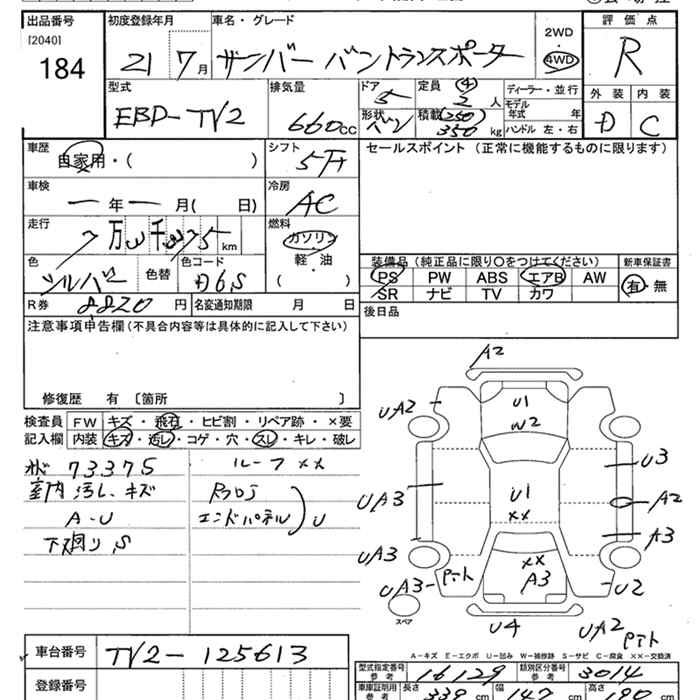 出品番号 初度登録年月 車名・グレード 評価点
[2040]
184 21 7月 サンバー バントランスポーター 2WD 4WD R
型式 排気量 ドア 定員 ④ ディーラー・並行 外装 内装
EBD-TV2 660cc 5 2人 モデル年式 年 D C
形状 バン 積載 (250) 350kg ハンドル 左・右
車歴 シフト セールスポイント (正常に機能するものに限ります)
自家用・( ) 5F
車検 冷房
ー年ー月( 日) AC
走行 燃料
7万3千375km ガソリン
色 色替 色コード 軽・油
シルバー D6S ( )
装備品 (純正品に限り○をつけてください) 新車保証書
PS PW ABS エアB AW 有・無
SR ナビ TV カワ
R券 8820円 名変通知期限 月 日
後日品
注意事項申告欄 (不具合内容等は具体的に記入して下さい)
修復歴 有 〔箇所 〕
検査員 FW キズ・飛石・ヒビ割・リペア跡・×要
記入欄 内装 キズ・汚レ・コゲ・穴・スレ・キレ・破レ
73375 ルーフ××
室内汚レ、キズ
A-U エンドパネル U
下廻り、S
A2
UA2
U1
W2
U3
UA3
U1
××
A2
A3
UA3
××
A3
UA3-
U2
スペア
U4
UA2
A-キズ E-エクボ U-凹み W-補修跡 S-サビ C-腐食 ××-交換済
車台番号 TV2-125613
型式指定番号 参考 16129 類別区分番号 参考 3014
登録番号
車庫証明用 参考 長さ 339cm 幅 147cm 高さ 190cm